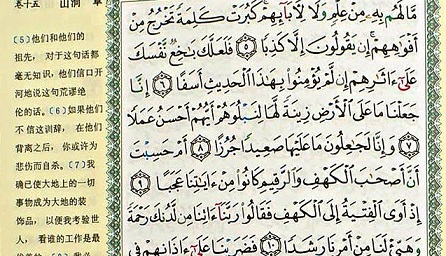 卷十五 山洞 章
(5)他们和他们的
祖先, 对于这句话都
毫无知识, 他们信口开
河地说这句荒谬绝
伦的话。(6)如果他们
不信这训辞, 在他们
背离之后, 你或许为
悲伤而自杀。(7)我
确已使大地上的一切
事物成为大地的装
饰品, 以便我考验世
人, 看谁的工作是最
مَّا لَهُم بِهِۦ مِنْ عِلْمٍ وَلَا لِأٓبَآئِهِمْ كَبُرَتْ كَلِمَةً تَخْرُجُ مِنْ
أَفْوَٰهِهِمْ إِن يَقُولُونَ إِلَّا كَذِبًا ٥ فَلَعَلَّكَ بَٰخِعٌ نَّفْسَكَ
عَلَىٰٓ ءَاثَٰرِهِمْ إِن لَّمْ يُؤْمِنُوا۟ بِهَٰذَا ٱلْحَدِيثِ أَسَفًا ٦ إِنَّا
جَعَلْنَا مَا عَلَى ٱلْأَرْضِ زِينَةً لَّهَا لِنَبْلُوَهُمْ أَيُّهُمْ أَحْسَنُ عَمَلًا
٧ وَإِنَّا لَجَٰعِلُونَ مَا عَلَيْهَا صَعِيدًا جُرُزًا ٨ أَمْ حَسِبْتَ
أَنَّ أَصْحَٰبَ ٱلْكَهْفِ وَٱلرَّقِيمِ كَانُوا۟ مِنْ ءَايَٰتِنَا عَجَبًا ٩
إِذْ أَوَى ٱلْفِتْيَةُ إِلَى ٱلْكَهْفِ فَقَالُوا۟ رَبَّنَآ ءَاتِنَا مِن لَّدُنكَ رَحْمَةً
وَهَيِّئْ لَنَا مِنْ أَمْرِنَا رَشَدًا ١٠ فَضَرَبْنَا عَلَىٰٓ ءَاذَانِهِمْ فِى